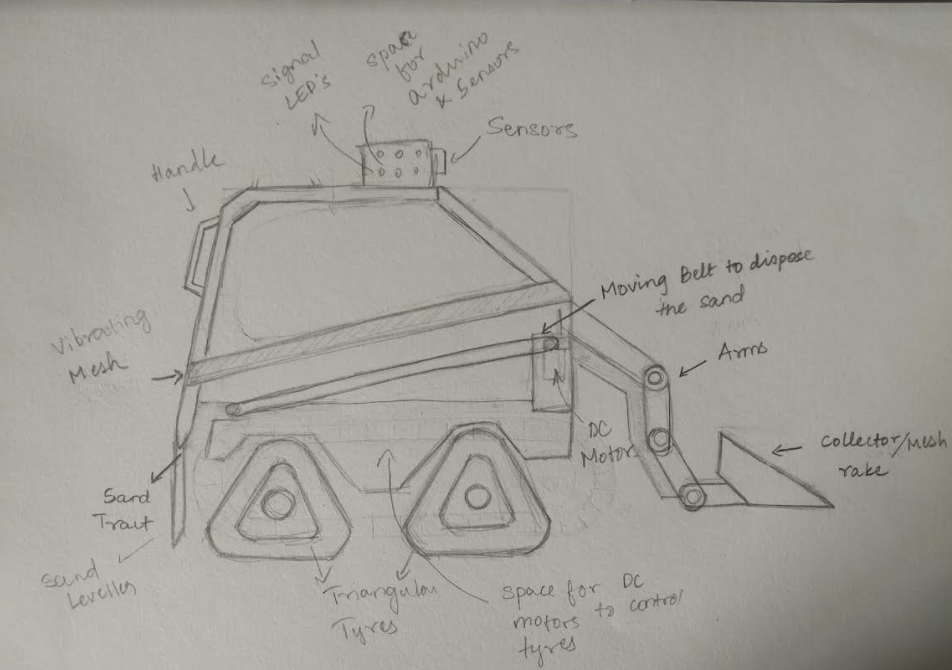 Signal
LED's
space
for
arduino
& Sensors
Sensors
Handle
Moving Belt to dispose
the sand
Vibrating
Mesh
Arms
DC
Motor
Collector/Mesh
rake
Sand
Traut
Sand
Leveller
Triangular
Tyres
space for DC
motors to control
tyres